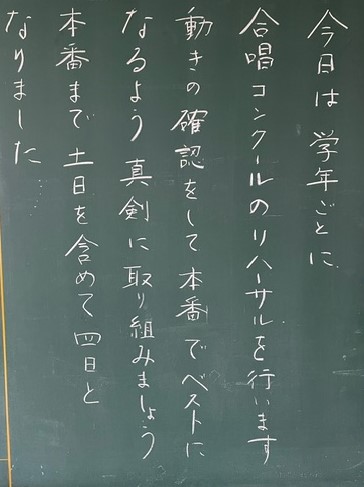 今日は 学年ごとに
合唱コンクールのリハーサルを行います
動きの確認をして本番でベストに
なるよう 真剣に取り組みましょう
本番まで 土日を含めて 四日と
なりました……